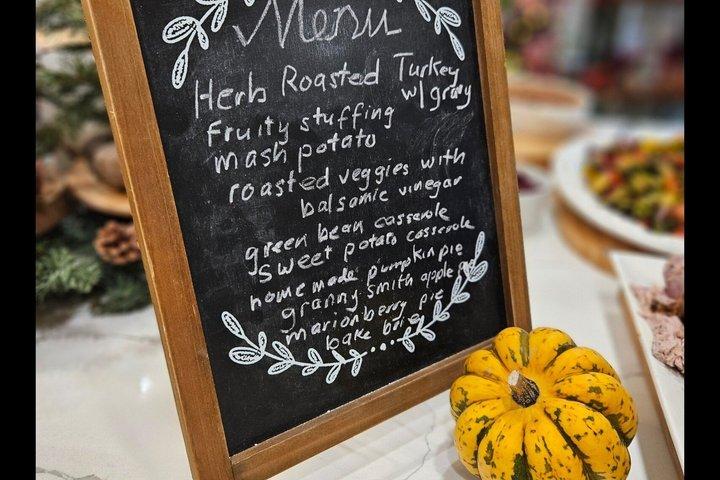 Menu
Herb Roasted Turkey
w/ gravy
Fruity stuffing
mash potato
roasted veggies with
balsamic vinegar
green bean casserole
sweet potato casserole
home made pumpkin pie
granny smith apple
marionberry pie
bake brie